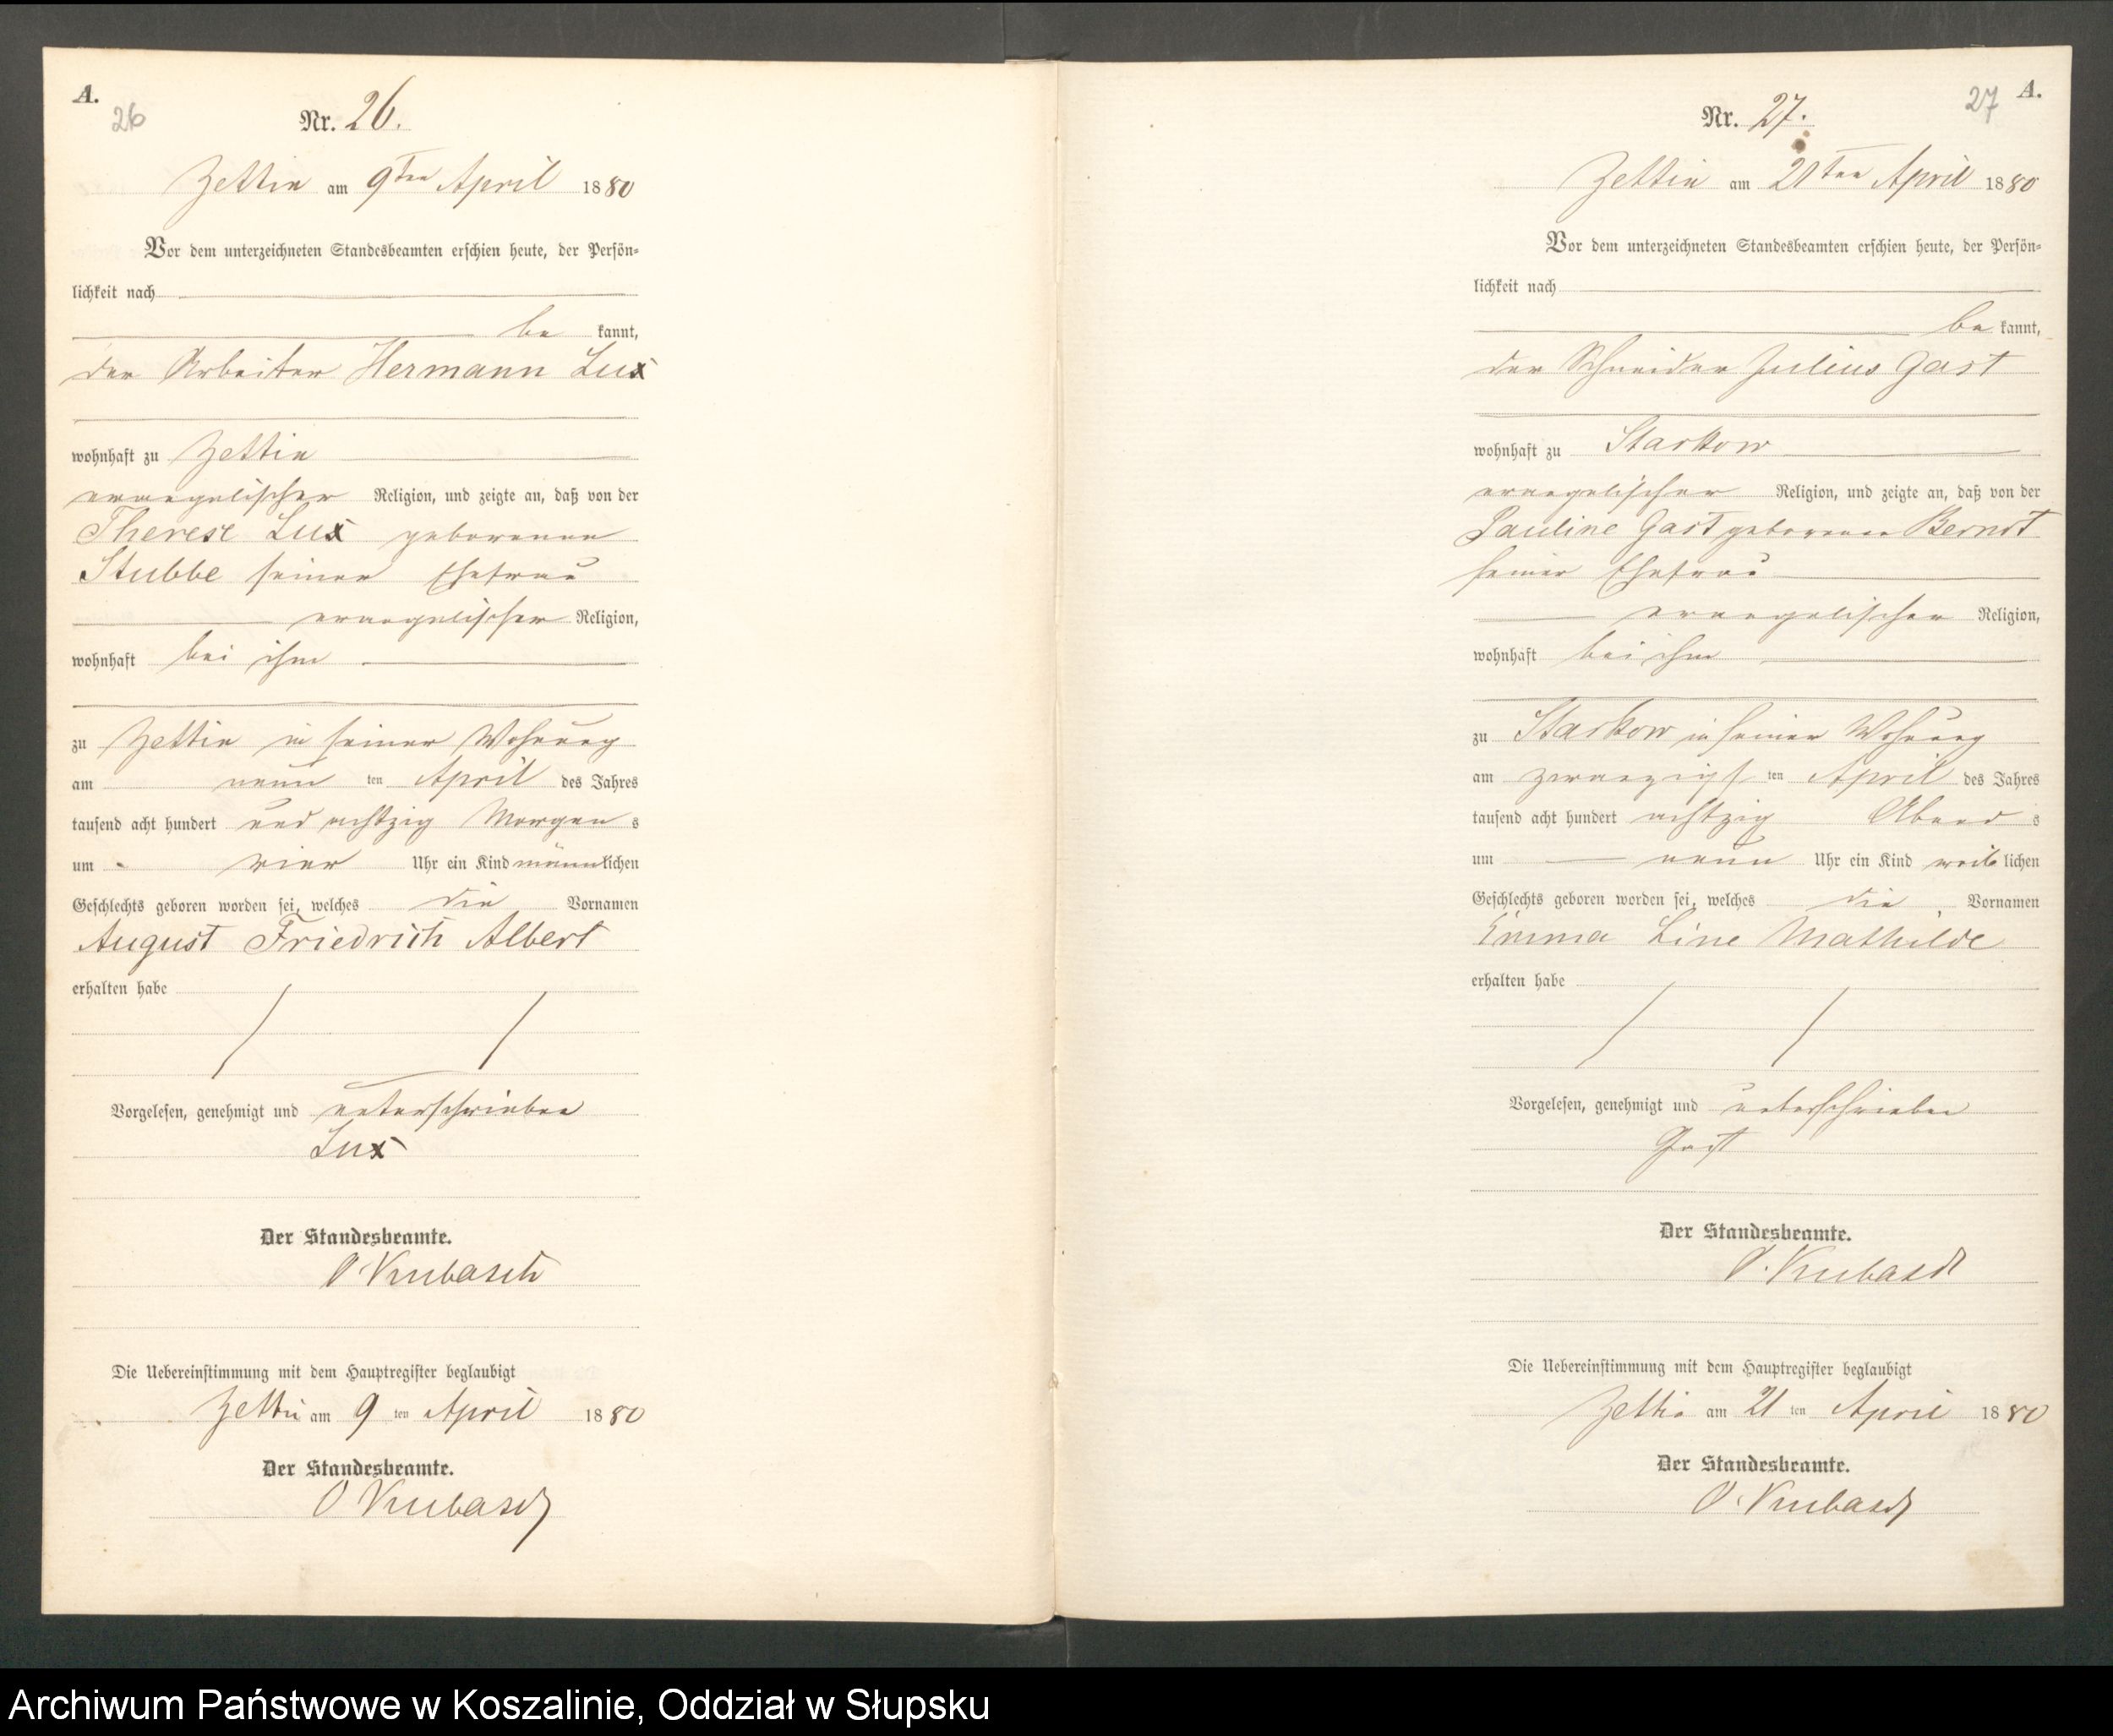 A.
26
Nr. 26.
Zettin am 9ten April 1880
Vor dem unterzeichneten Standesbeamten erschien heute, der Persön-
lichkeit nach
be kannt,
der Arbeiter Hermann Lux
wohnhaft zu Zettin
evangelischer Religion, und zeigte an, daß von der
Therese Lux geborenen
Stubbe seiner Ehefrau
evangelischer Religion,
wohnhaft bei ihm
zu Zettin in seiner Wohnung
am neun ten April des Jahres
tausend acht hundert und achtzig Morgen s
um vier Uhr ein Kind männlichen
Geschlechts geboren worden sei, welches die Vornamen
August Friedrich Albert
erhalten habe
Vorgelesen, genehmigt und unterschrieben
Lux
Der Standesbeamte.
O Kubasch
Die Uebereinstimmung mit dem Hauptregister beglaubigt
Zettin am 9 ten April 1880
Der Standesbeamte.
O Kubasch
27
A.
Nr. 27.
Zettin am 21ten April 1880
Vor dem unterzeichneten Standesbeamten erschien heute, der Persön-
lichkeit nach
be kannt,
der Schneider Julius Gast
wohnhaft zu Starkow
evangelischer Religion, und zeigte an, daß von der
Pauline Gast geborenen Berndt
seiner Ehefrau
evangelischer Religion,
wohnhaft bei ihm
zu Starkow in seiner Wohnung
am zwanzigs ten April des Jahres
tausend acht hundert achtzig Abend s
um neun Uhr ein Kind weib lichen
Geschlechts geboren worden sei, welches die Vornamen
Emma Line Mathilde
erhalten habe
Vorgelesen, genehmigt und unterschrieben
Gast
Der Standesbeamte.
O. Kubasch
Die Uebereinstimmung mit dem Hauptregister beglaubigt
Zettin am 21 ten April 1880
Der Standesbeamte.
O. Kubasch
Archiwum Państwowe w Koszalinie, Oddział w Słupsku